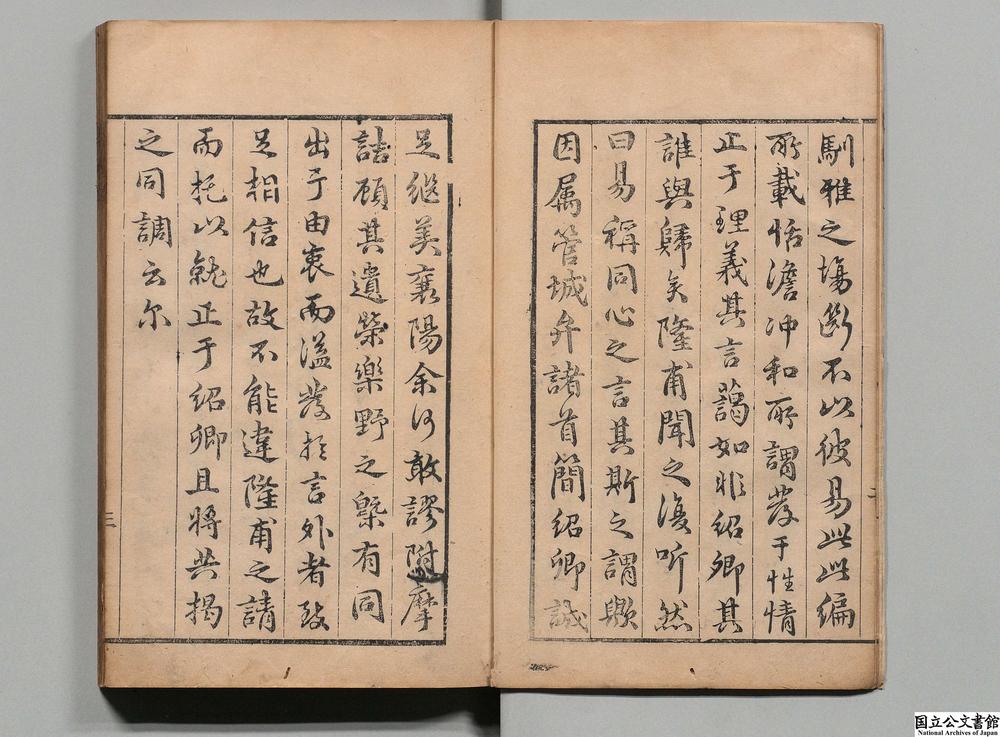 馴雅之場斷不以彼易此此編
所載恬澹冲和所謂发于性情
止于理義其言藹如非紹卿其
誰與歸矣隆甫聞之復听然
曰易稱同心之言其斯之謂歟
因属管城弁諸首簡紹卿誠
二
足継美襄陽余何敢謬附摩
詰顧其遺榮樂野之槩有同
出于由衷而溢发於言外者致
足相信也故不能違隆甫之請
而托以就正于紹卿且將共揭
之同調云尔
三
国立公文書館
National Archives of Japan